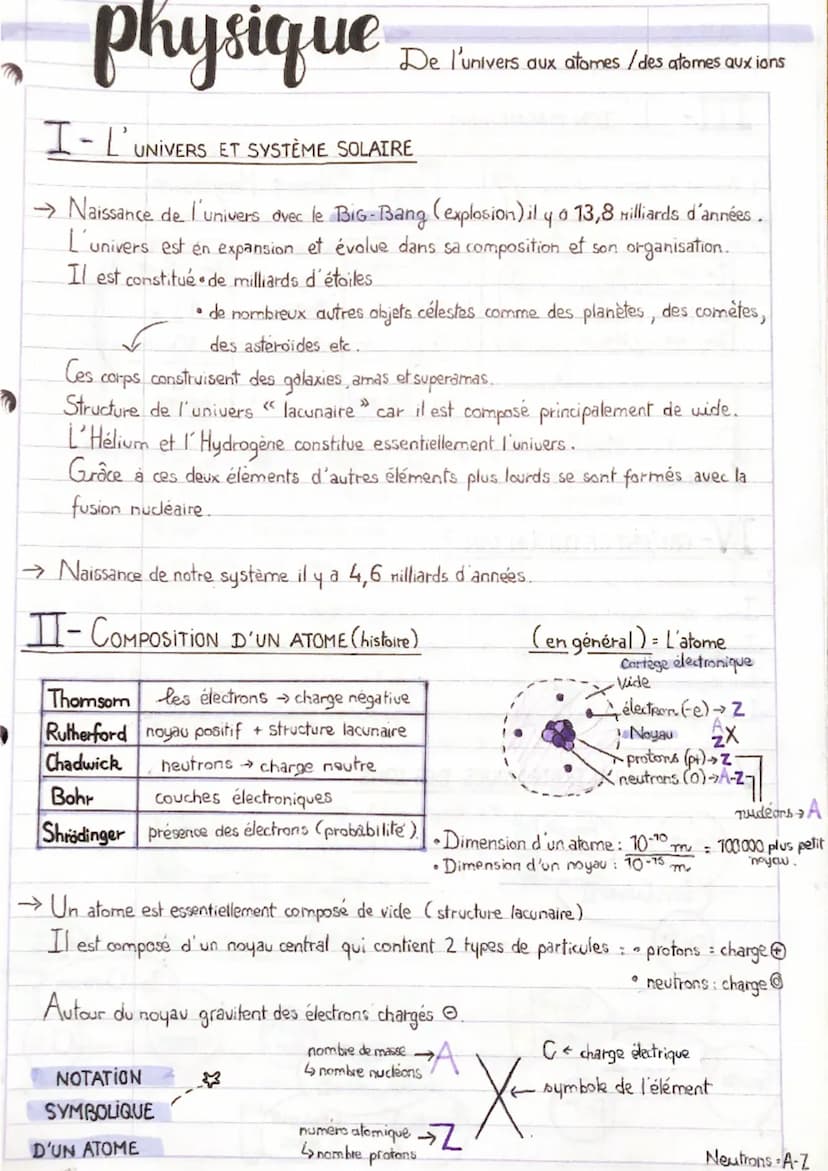 physique
De l'univers aux atomes / des atomes aux ions
I - L'UNIVERS ET SYSTÈME SOLAIRE
→ Naissance de l'univers avec le BIG-Bang (explosion) il y a 13,8 milliards d'années.
L'univers est en expansion et évolue dans sa composition et son organisation.
Il est constitué • de milliards d'étoiles
• de nombreux autres objets célestes comme des planètes, des comètes,
des astéroïdes etc.
Ces corps construisent des galaxies, amas et superamas.
Structure de l'univers « lacunaire » car il est composé principalement de vide.
L'Hélium et l'Hydrogène constitue essentiellement l'univers.
Grâce à ces deux élèments d'autres éléments plus lourds se sont formés avec la
fusion nucléaire.
→ Naissance de notre système il y a 4,6 milliards d'années.
II - COMPOSITION D'UN ATOME (histoire)
Thomsom les électrons → charge négative
Rutherford noyau positif + structure lacunaire
Chadwick neutrons → charge neutre
Bohr couches électroniques
Shrödinger présence des électrons (probabilité)
(en général) = L'atome
Cortège électronique
Vide
électron (-e) → Z
Noyau
A
Z X
protons (pi) → Z
neutrons (0) → A-Z
nucléons → A
• Dimension d'un atome : 10⁻¹⁰ m = 100000 plus petit
• Dimension d'un noyau : 10⁻¹⁵ m noyau.
→ Un atome est essentiellement composé de vide (structure lacunaire)
Il est composé d'un noyau central qui contient 2 types de particules : • protons = charge ⊕
• neutrons : charge ⓪
Autour du noyau gravitent des électrons chargés ⊖.
NOTATION
SYMBOLIQUE
D'UN ATOME
nombre de masse → A
↳ nombre nucléons
numéro atomique → Z
↳ nombre protons
X
C ← charge électrique
← symbole de l'élément
Neutrons = A-Z